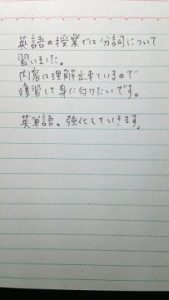 英語の授業では分詞について
習いました。
内容は理解出来ているので
復習して身に付けたいです。
英単語、強化していきます。